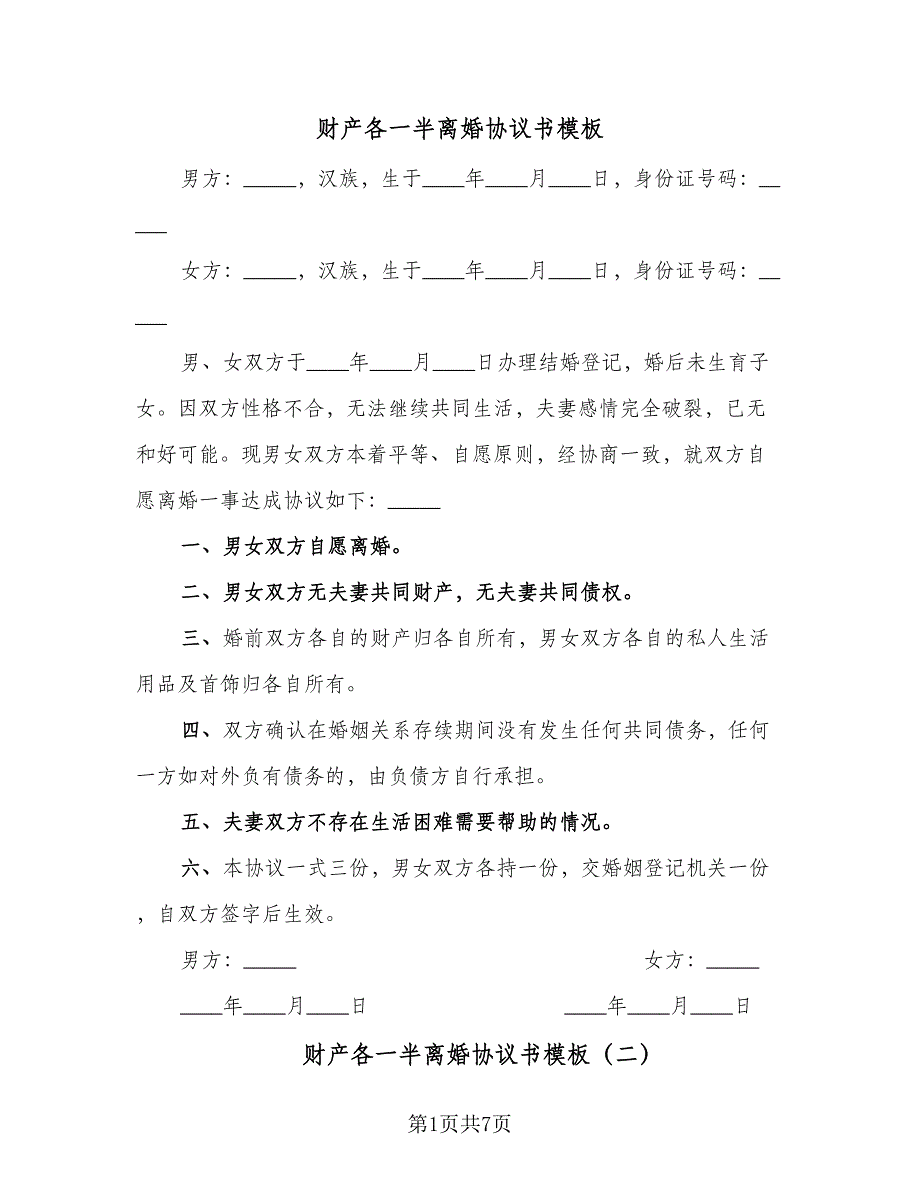 财产各一半离婚协议书模板
男方：_____，汉族，生于____年____月____日，身份证号码：__
___
女方：_____，汉族，生于____年____月____日，身份证号码：__
___
男、女双方于____年____月____日办理结婚登记，婚后未生育子
女。因双方性格不合，无法继续共同生活，夫妻感情完全破裂，已无
和好可能。现男女双方本着平等、自愿原则，经协商一致，就双方自
愿离婚一事达成协议如下：_____
一、男女双方自愿离婚。
二、男女双方无夫妻共同财产，无夫妻共同债权。
三、婚前双方各自的财产归各自所有，男女双方各自的私人生活
用品及首饰归各自所有。
四、双方确认在婚姻关系存续期间没有发生任何共同债务，任何
一方如对外负有债务的，由负债方自行承担。
五、夫妻双方不存在生活困难需要帮助的情况。
六、本协议一式三份，男女双方各持一份，交婚姻登记机关一份
，自双方签字后生效。
男方：_____ 女方：_____
____年____月____日 ____年____月____日
财产各一半离婚协议书模板（二）
第1页共7页